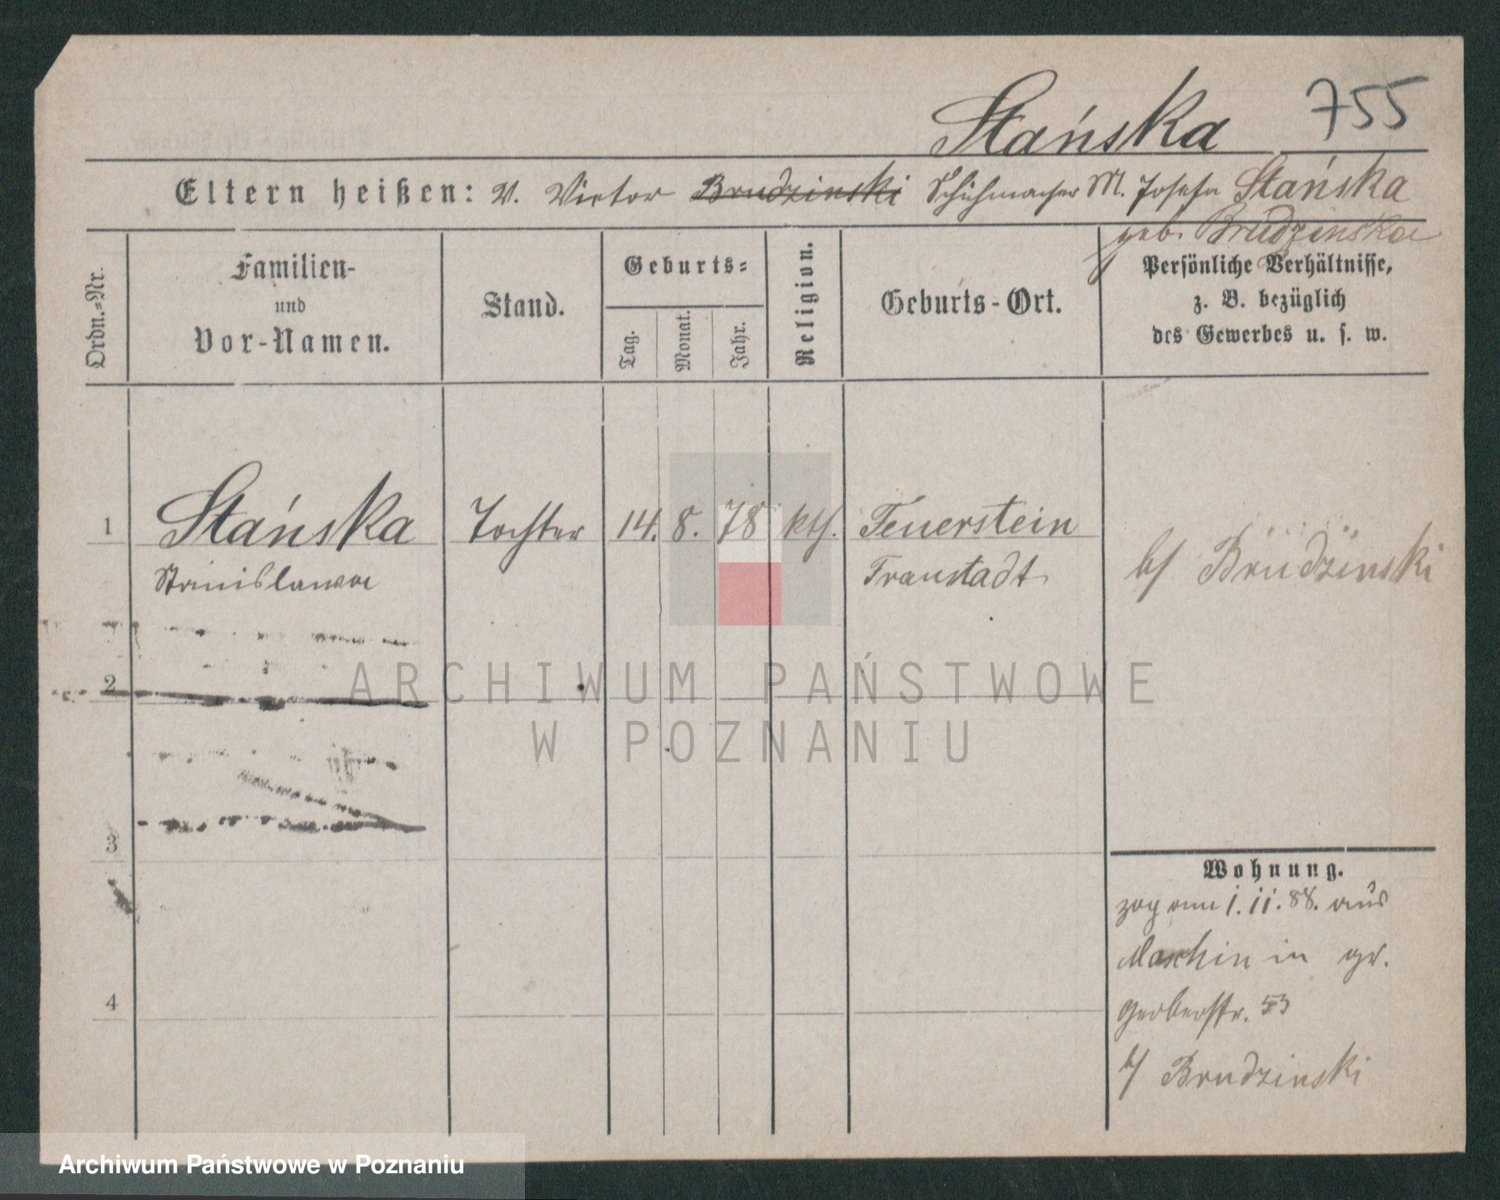 Stańska 755
Eltern heißen: V. Victor Brudzinski Schuhmacher M. Josefa Stańska
geb. Brudzinska
Ordn.-Nr.
Familien-
und
Vor-Namen.
Stand.
Geburts-
Tag.
Monat.
Jahr.
Religion.
Geburts-Ort.
Persönliche Verhältnisse,
z. B. bezüglich
des Gewerbes u. s. w.
1 Stańska Tochter 14. 8. 78 kth. Feuerstein
Stanislawa Fraustadt
b/ Brudzinski
2
3
4
ARCHIWUM PAŃSTWOWE
W POZNANIU
Wohnung.
zog am 1. 11. 88. aus
in gr.
Gerberstr. 53
b/ Brudzinski
Archiwum Państwowe w Poznaniu